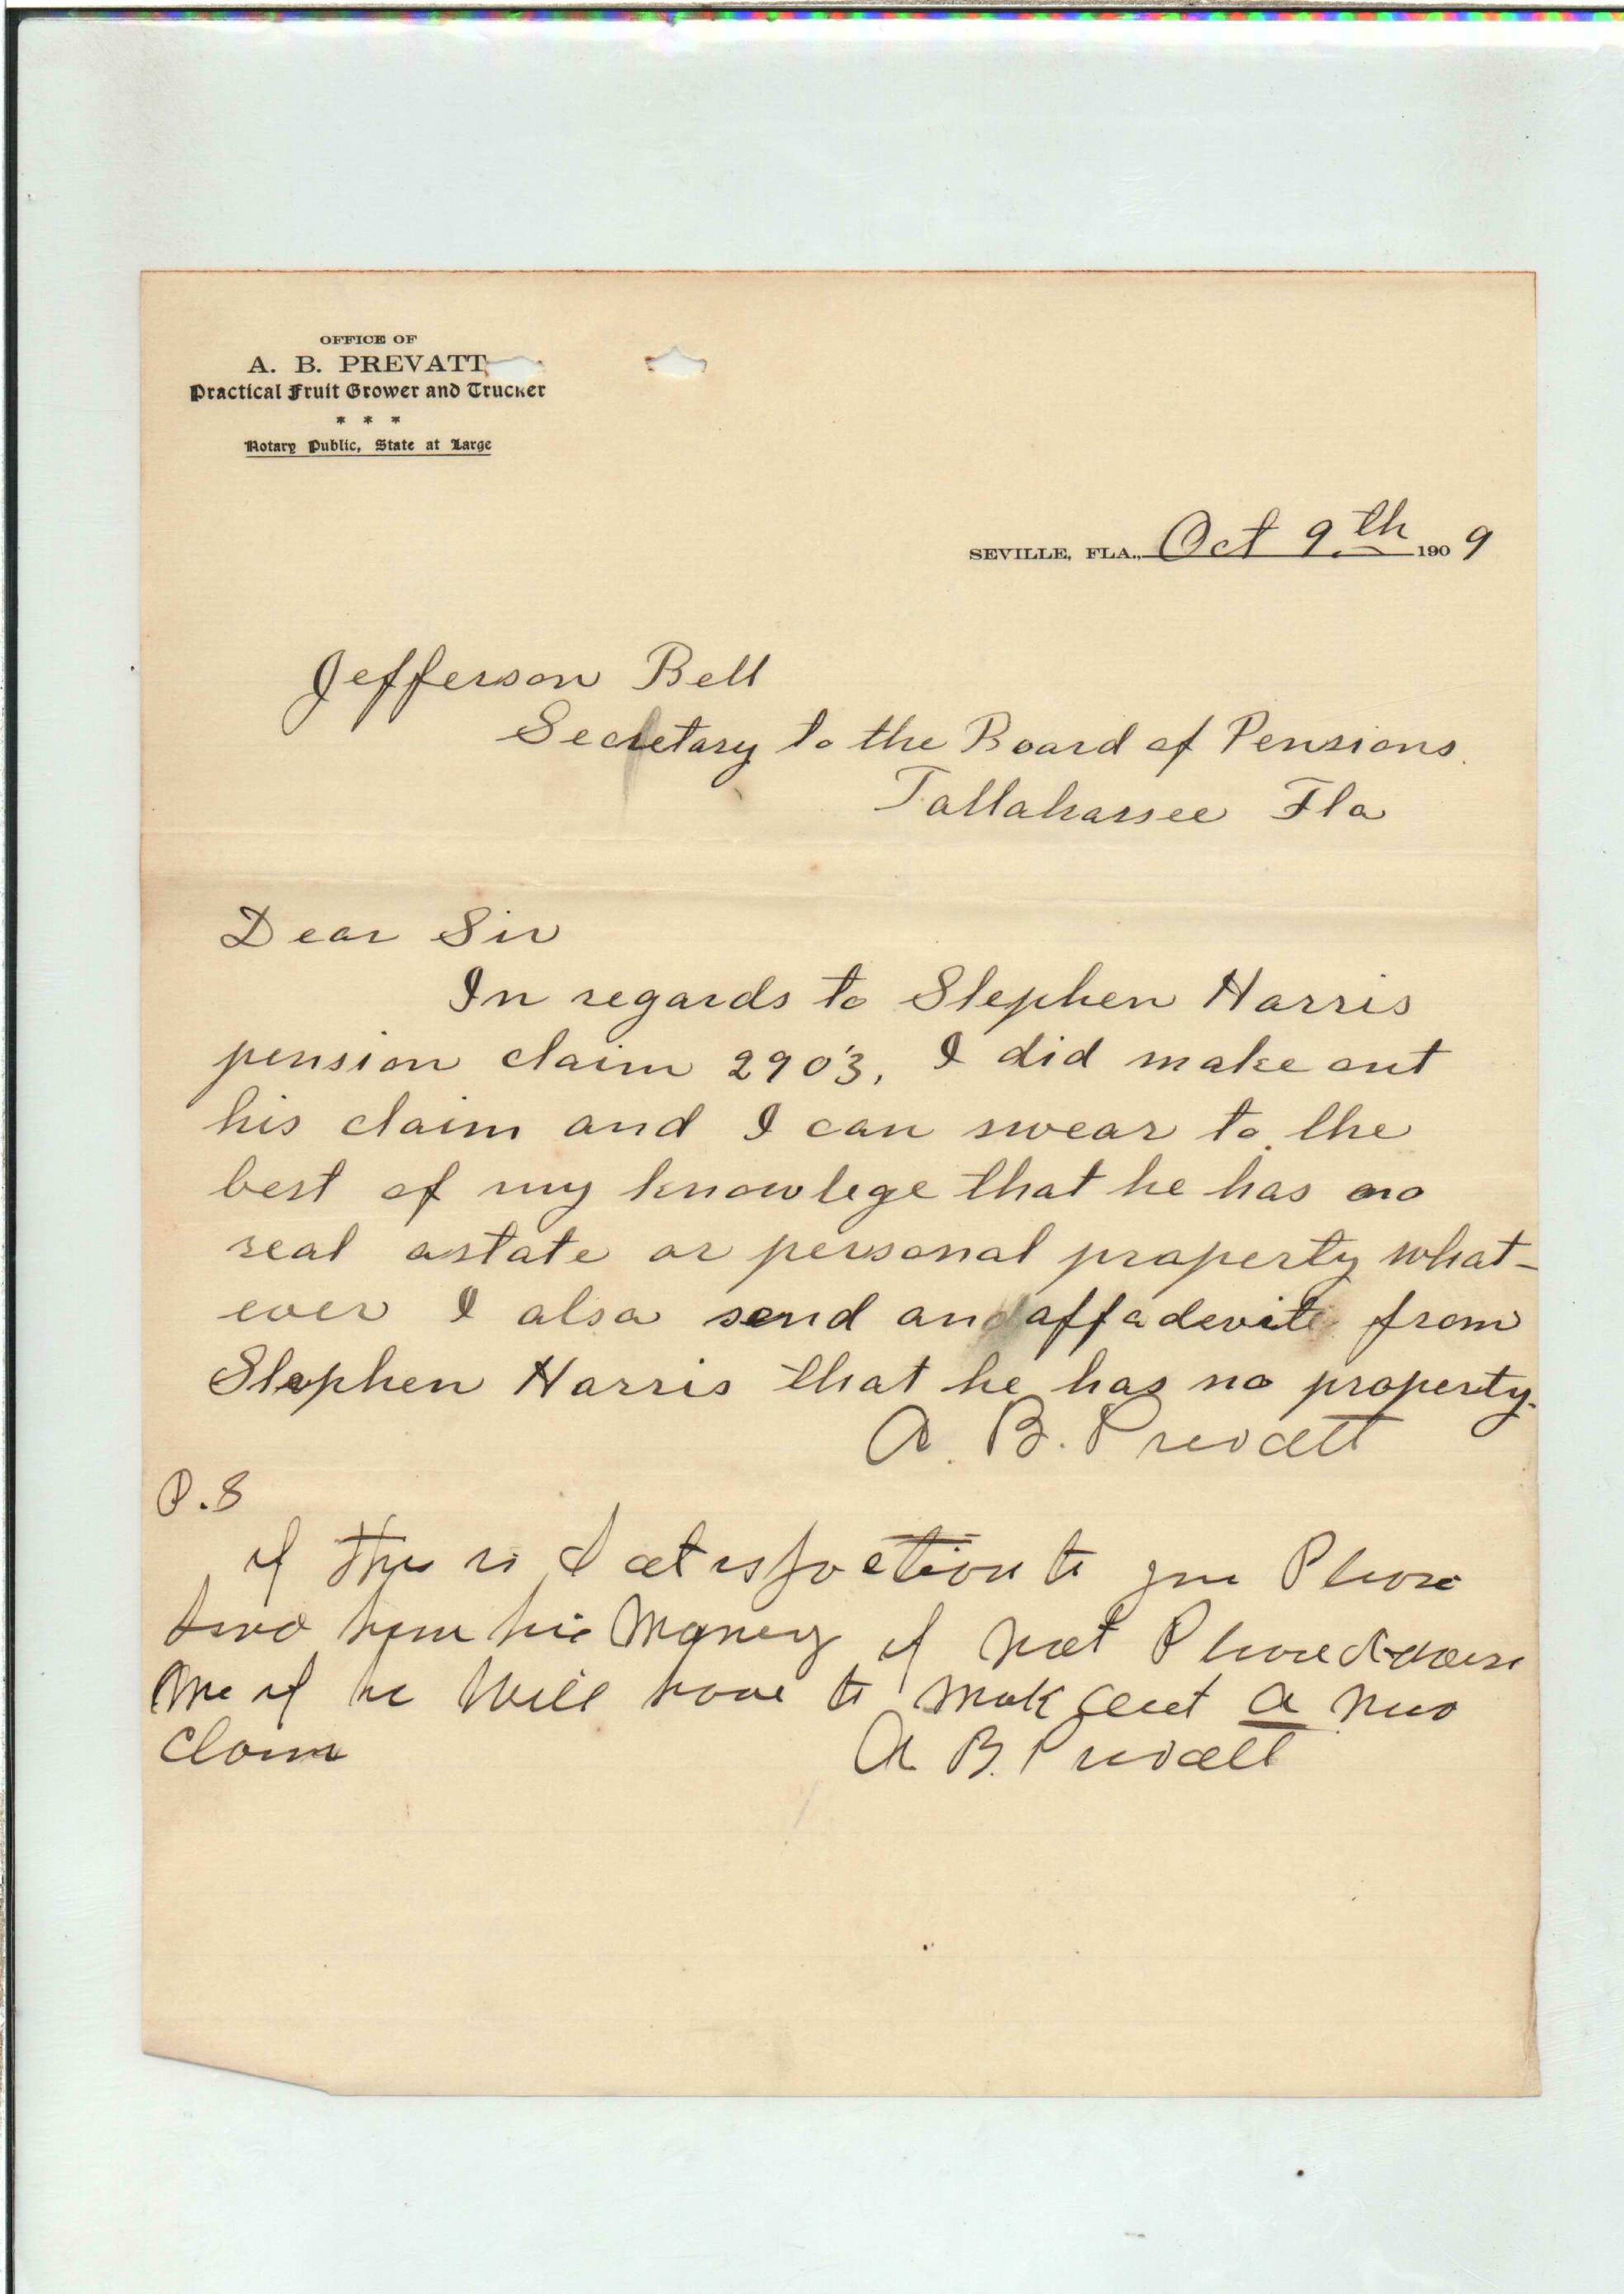 OFFICE OF
A. B. PREVATT
Practical Fruit Grower and Trucker
* * *
Notary Public, State at Large
SEVILLE, FLA., Oct 9th 1909
Jefferson Bell
Secretary to the Board of Pensions.
Tallahassee Fla
Dear Sir
In regards to Stephen Harris
pension claim 2903, I did make out
his claim and I can swear to the
best of my knowlege that he has no
real astate or personal property what-
ever I also send an affadevite from
Stephen Harris that he has no property.
A. B. Prevatt
P.S
if this is Satisfaction to you Please
send him his Money if not Please
me if he Will have to Mak out a new
Claim
A B. Prevatt